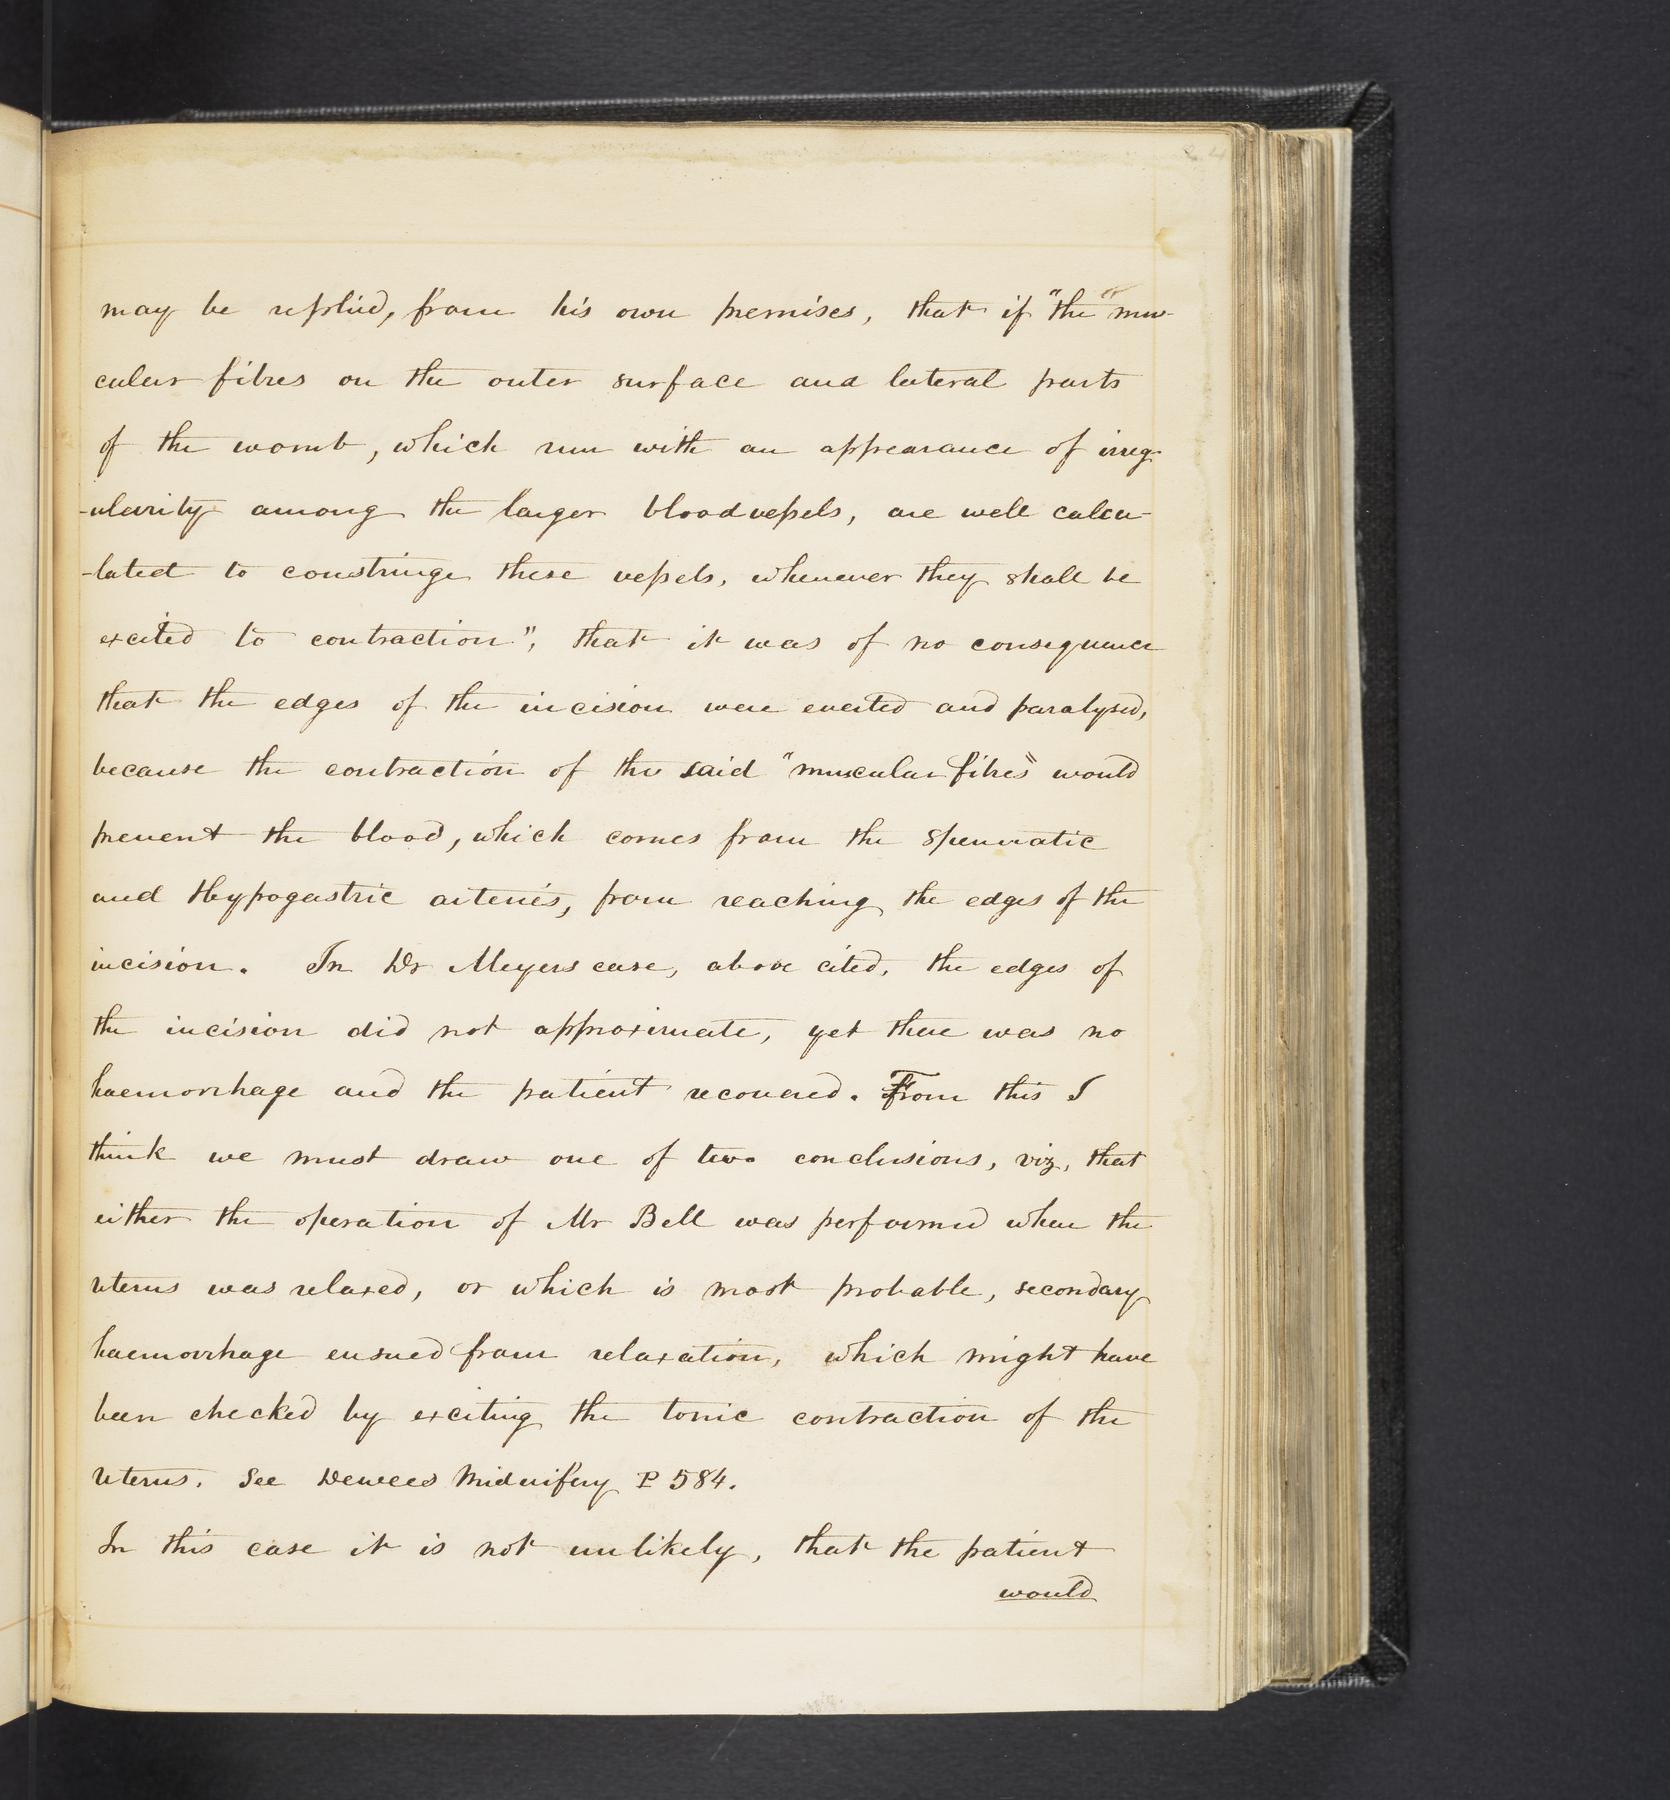 may be replied, from his own premises, that if "the "mus-
cular fibres on the outer surface and lateral parts
of the womb, which run with an appearance of irreg-
-ularity among the larger bloodvessels, are well calcu-
-lated to constringe these vessels, whenever they shall be
excited to contraction", that it was of no consequence
that the edges of the incision were everted and paralysed,
because the contraction of the said "muscular fibres" would
prevent the blood, which comes from the spermatic
and Hypogastric arteries, from reaching the edges of the
incision. In Dr Meyers case, above cited, the edges of
the incision did not approximate, yet there was no
haemorrhage and the patient recovered. From this I
think we must draw one of two conclusions, viz, that
either the operation of Mr Bell was performed when the
uterus was relaxed, or which is most probable, secondary
haemorrhage ensued from relaxation, which might have
been checked by exciting the tonic contraction of the
uterus. See Dewees Midwifery P 584.
In this case it is not unlikely, that the patient
would